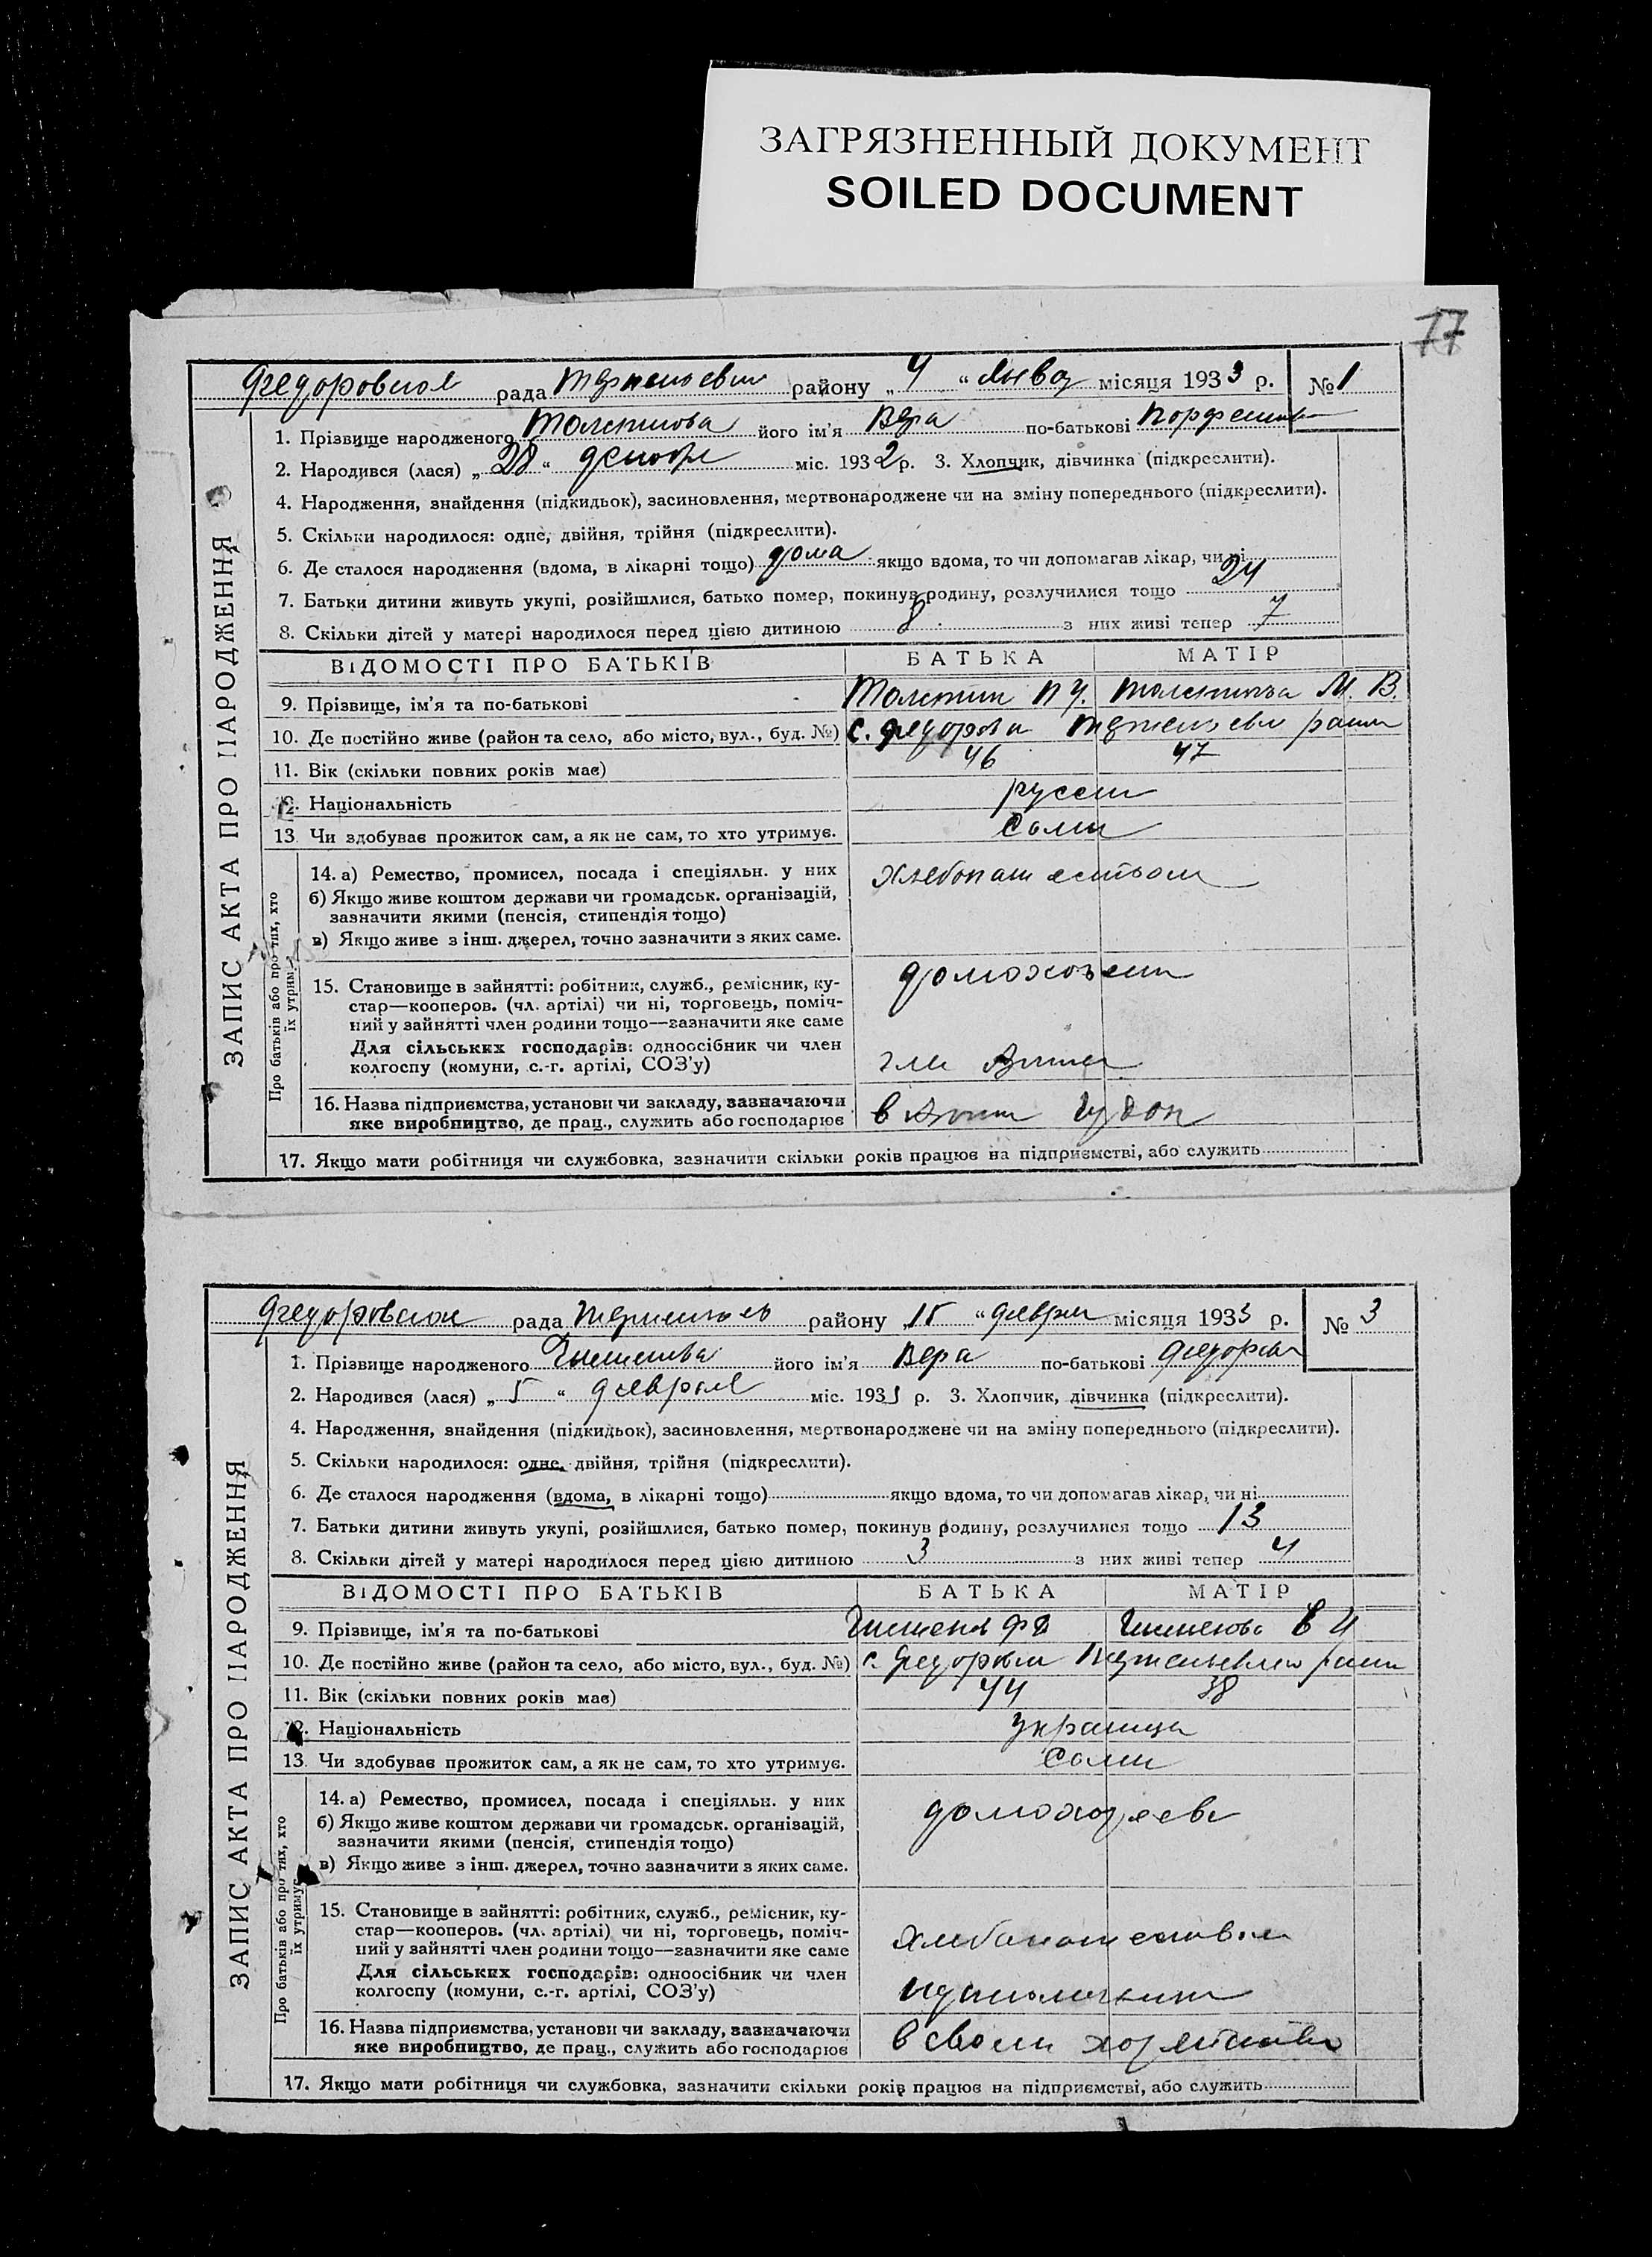 ЗАГРЯЗНЕННЫЙ ДОКУМЕНТ
SOILED DOCUMENT
77
Федоровской рада району „4“ Января місяця 1933 р. № 1
ЗАПИС АКТА ПРО НАРОДЖЕННЯ
1. Прізвище народженого його ім'я Вера по-батькові
2. Народився (лася) „28“ декабря міс. 1932 р. 3. Хлопчик, дівчинка (підкреслити).
4. Народження, знайдення (підкидьок), засиновлення, мертвонароджене чи на зміну попереднього (підкреслити).
5. Скільки народилося: одне, двійня, трійня (підкреслити).
6. Де сталося народження (вдома, в лікарні тощо) дома якщо вдома, то чи допомагав лікар, чи ні
7. Батьки дитини живуть укупі, розійшлися, батько помер, покинув родину, розлучилися тощо 24
8. Скільки дітей у матері народилося перед цією дитиною 8 з них живі тепер 7
ВІДОМОСТІ ПРО БАТЬКІВ БАТЬКА МАТІР
9. Прізвище, ім'я та по-батькові М. В.
10. Де постійно живе (район та село, або місто, вул., буд. №) с.
11. Вік (скільки повних років має) 46 47
12. Національність русски
13. Чи здобуває прожиток сам, а як не сам, то хто утримує. Сами
Про батьків або про тих, хто їх утримує
14. а) Ремество, промисел, посада і спеціяльн. у них Хлебопашеством
б) Якщо живе коштом держави чи громадськ. організацій,
зазначити якими (пенсія, стипендія тощо)
в) Якщо живе з інш. джерел, точно зазначити з яких саме.
15. Становище в зайнятті: робітник, служб., ремісник, ку-
стар—кооперов. (чл. артілі) чи ні, торговець, поміч-
ний у зайнятті член родини тощо—зазначити яке саме
Для сільських господарів: одноосібник чи член
колгоспу (комуни, с.-г. артілі, СОЗ'у)
16. Назва підприємства, установи чи закладу, зазначаючи
яке виробництво, де прац., служить або господарює в
17. Якщо мати робітниця чи службовка, зазначити скільки років працює на підприємстві, або служить
Федоровской рада району „15“ феврля місяця 1933 р. № 3
ЗАПИС АКТА ПРО НАРОДЖЕННЯ
1. Прізвище народженого його ім'я Вера по-батькові
2. Народився (лася) „5“ февраля міс. 1933 р. 3. Хлопчик, дівчинка (підкреслити).
4. Народження, знайдення (підкидьок), засиновлення, мертвонароджене чи на зміну попереднього (підкреслити).
5. Скільки народилося: одне, двійня, трійня (підкреслити).
6. Де сталося народження (вдома, в лікарні тощо) якщо вдома, то чи допомагав лікар, чи ні
7. Батьки дитини живуть укупі, розійшлися, батько помер, покинув родину, розлучилися тощо 13
8. Скільки дітей у матері народилося перед цією дитиною 3 з них живі тепер 4
ВІДОМОСТІ ПРО БАТЬКІВ БАТЬКА МАТІР
9. Прізвище, ім'я та по-батькові
10. Де постійно живе (район та село, або місто, вул., буд. №) с.
11. Вік (скільки повних років має) 44 38
12. Національність украинца
13. Чи здобуває прожиток сам, а як не сам, то хто утримує. Сами
Про батьків або про тих, хто їх утримує
14. а) Ремество, промисел, посада і спеціяльн. у них
б) Якщо живе коштом держави чи громадськ. організацій,
зазначити якими (пенсія, стипендія тощо)
в) Якщо живе з інш. джерел, точно зазначити з яких саме.
15. Становище в зайнятті: робітник, служб., ремісник, ку-
стар—кооперов. (чл. артілі) чи ні, торговець, поміч- Хлебопашеством
ний у зайнятті член родини тощо—зазначити яке саме
Для сільських господарів: одноосібник чи член
колгоспу (комуни, с.-г. артілі, СОЗ'у)
16. Назва підприємства, установи чи закладу, зазначаючи
яке виробництво, де прац., служить або господарює в своем
17. Якщо мати робітниця чи службовка, зазначити скільки років працює на підприємстві, або служить